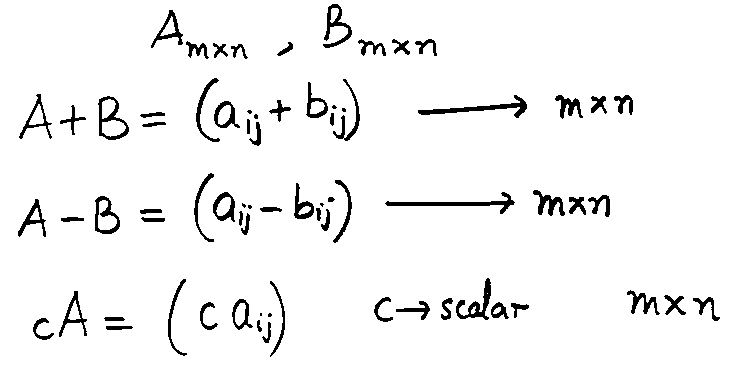 A_{m×n} , B_{m×n}
A+B = (a_{ij} + b_{ij}) ⟶ m×n
A−B = (a_{ij} − b_{ij}) ⟶ m×n
cA = (c a_{ij}) c→scalar m×n